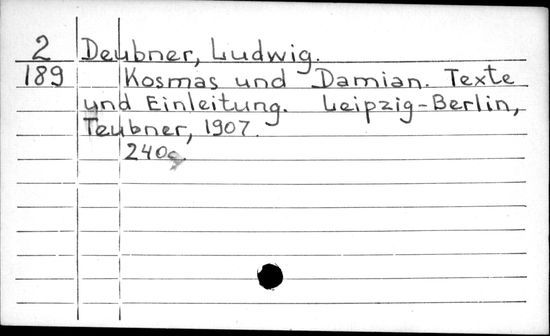 2 Deubner, Ludwig.
189 Kosmas und Damian. Texte
und Einleitung. Leipzig-Berlin,
Teubner, 1907.
240